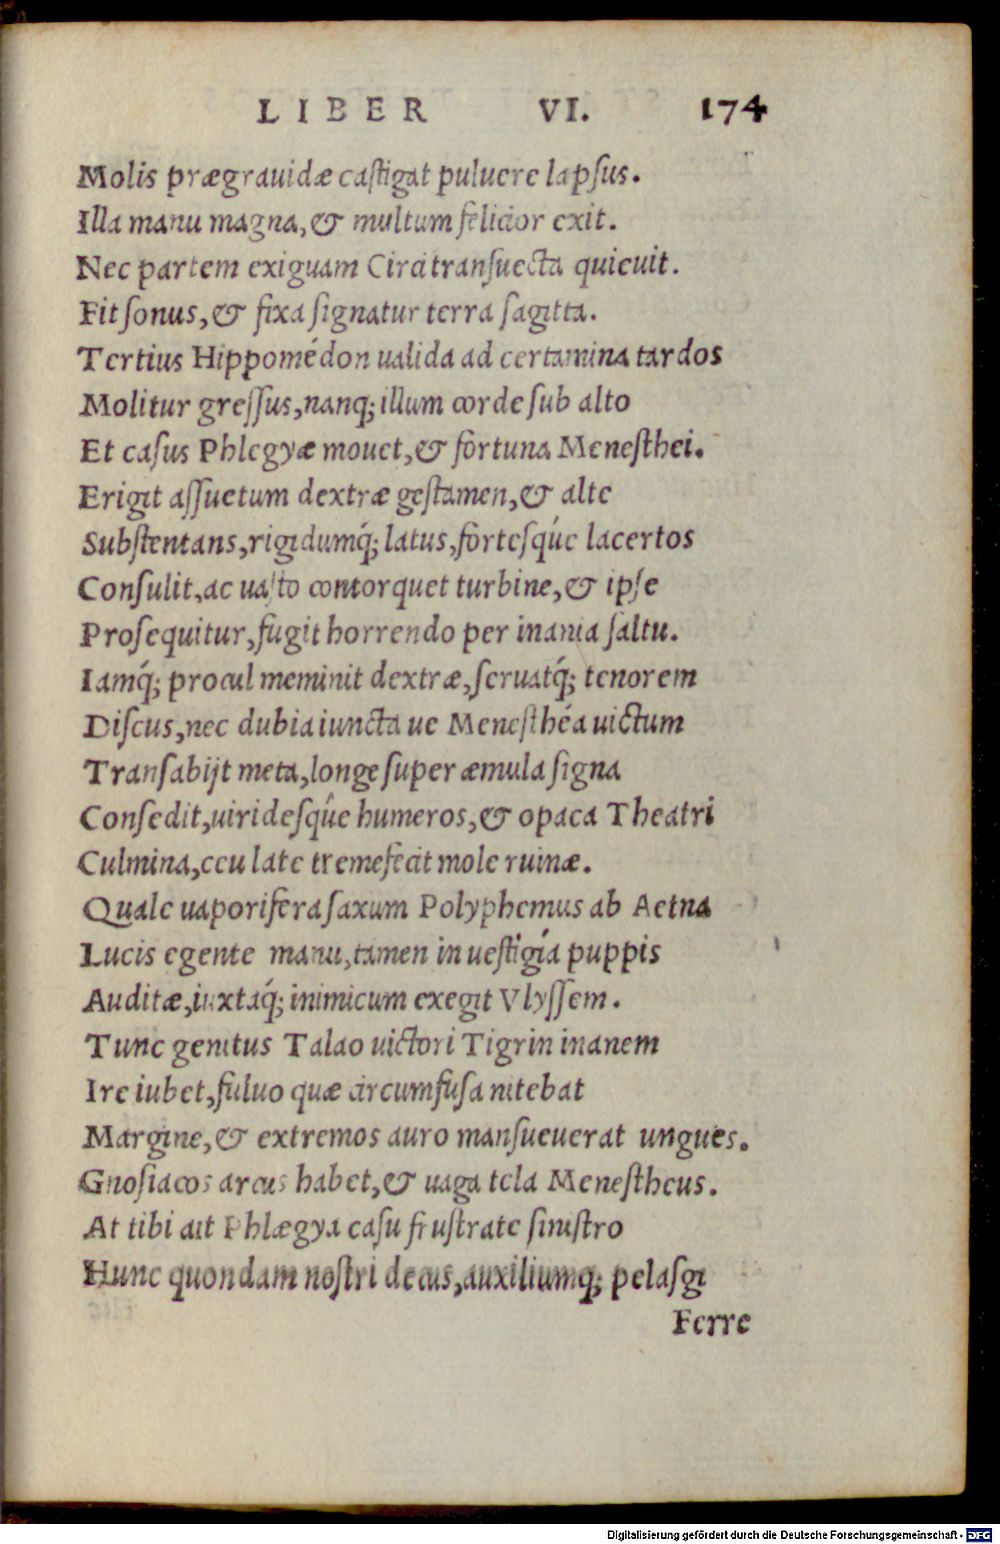 LIBER VI. 174
Molis prægrauidæ castigat puluere lapsus.
Illa manu magna, & multum felicior exit.
Nec partem exiguam Circi transuecta quieuit.
Fit sonus, & fixa signatur terra sagitta.
Tertius Hippomédon ualida ad certamina tardos
Molitur gressus, nanq; illum corde sub alto
Et casus Phlegyæ mouet, & fortuna Menesthei.
Erigit assuetum dextræ gestamen, & alte
Substentans, rigidumq́; latus, fortesq́ue lacertos
Consulit, ac uasto contorquet turbine, & ipse
Prosequitur, fugit horrendo per inania saltu.
Iamq́; procul meminit dextræ, seruatq́; tenorem
Discus, nec dubia iuncta ue Menesthéa uictum
Transabijt meta, longe super æmula signa
Consedit, uiridesq́ue humeros, & opaca Theatri
Culmina, ceu late tremefecit mole ruinæ.
Quale uaporifera saxum Polyphemus ab Aetna
Lucis egente manu, tamen in uestigía puppis
Auditæ, iuxtaq́; inimicum exegit Vlyssem.
Tunc genitus Talao uictori Tigrin inanem
Ire iubet, fuluo quæ circumfusa nitebat
Margine, & extremos auro mansueuerat ungues.
Gnosiacos arcus habet, & uaga tela Menestheus.
At tibi ait Phlægya casu frustrate sinistro
Hunc quondam nostri decus, auxiliumq; pelasgi
Ferre
Digitalisierung gefördert durch die Deutsche Forschungsgemeinschaft - DFG